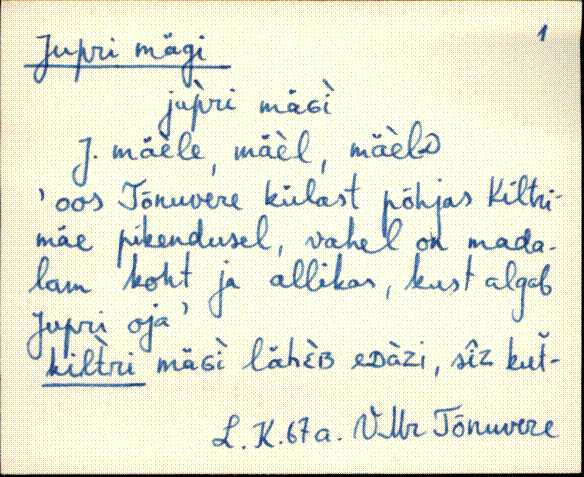 1
Jupri mägi
jup̀ri mäɢì
J. mäèle, mäèl, mäèlD
'oos Tõnuvere külast põhjas Kiltri-
mäe pikendusel, vahel on mada-
lam koht ja allikas, kust algab
Jupri oja'
kilt̀ri mäɢì lähɛ̀ʙ eᴅàzi, sîz kut̆-
L.K. 67 a. VMr Tõnuvere